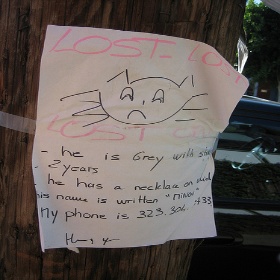 LOST LOST
LOST
- he is Grey with
2 years
- he has a necklace on
his name is written "
My phone is 323.